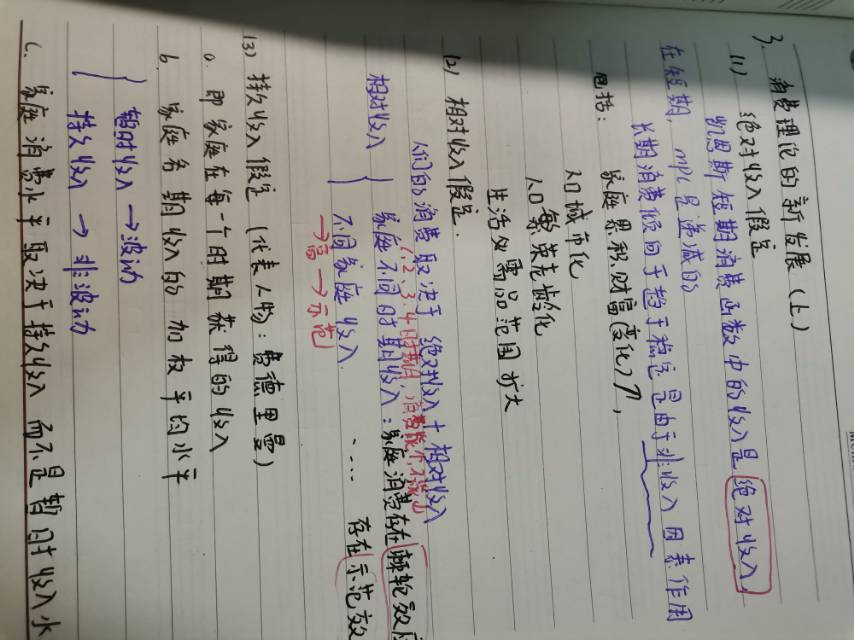 3. 消费理论的新发展（上）
(1) 绝对收入假定
凯恩斯短期消费函数中的收入是绝对收入,
在短期, mpc是递减的
长期消费倾向于趋于稳定是由于非收入因素作用
包括： 家庭累积财富(变化)↗,
人口城市化
人口繁荣老龄化
生活必需品范围扩大
(2) 相对收入假定.
人们的消费取决于 绝对收入+相对收入
1.2.3.4时期, 消费
相对收入 { 家庭不同时期收入：家庭消费存在棘轮效应
不同家庭收入. .... 存在示范效
→高→示范
(3) 持久收入假定（代表人物：费德里曼）
a. 即家庭在每一个时期获得的收入
b. 家庭各期收入的加权平均水平
{ 暂时收入→波动
持久收入→非波动
c. 家庭消费水平取决于持久收入而不是暂时收入水